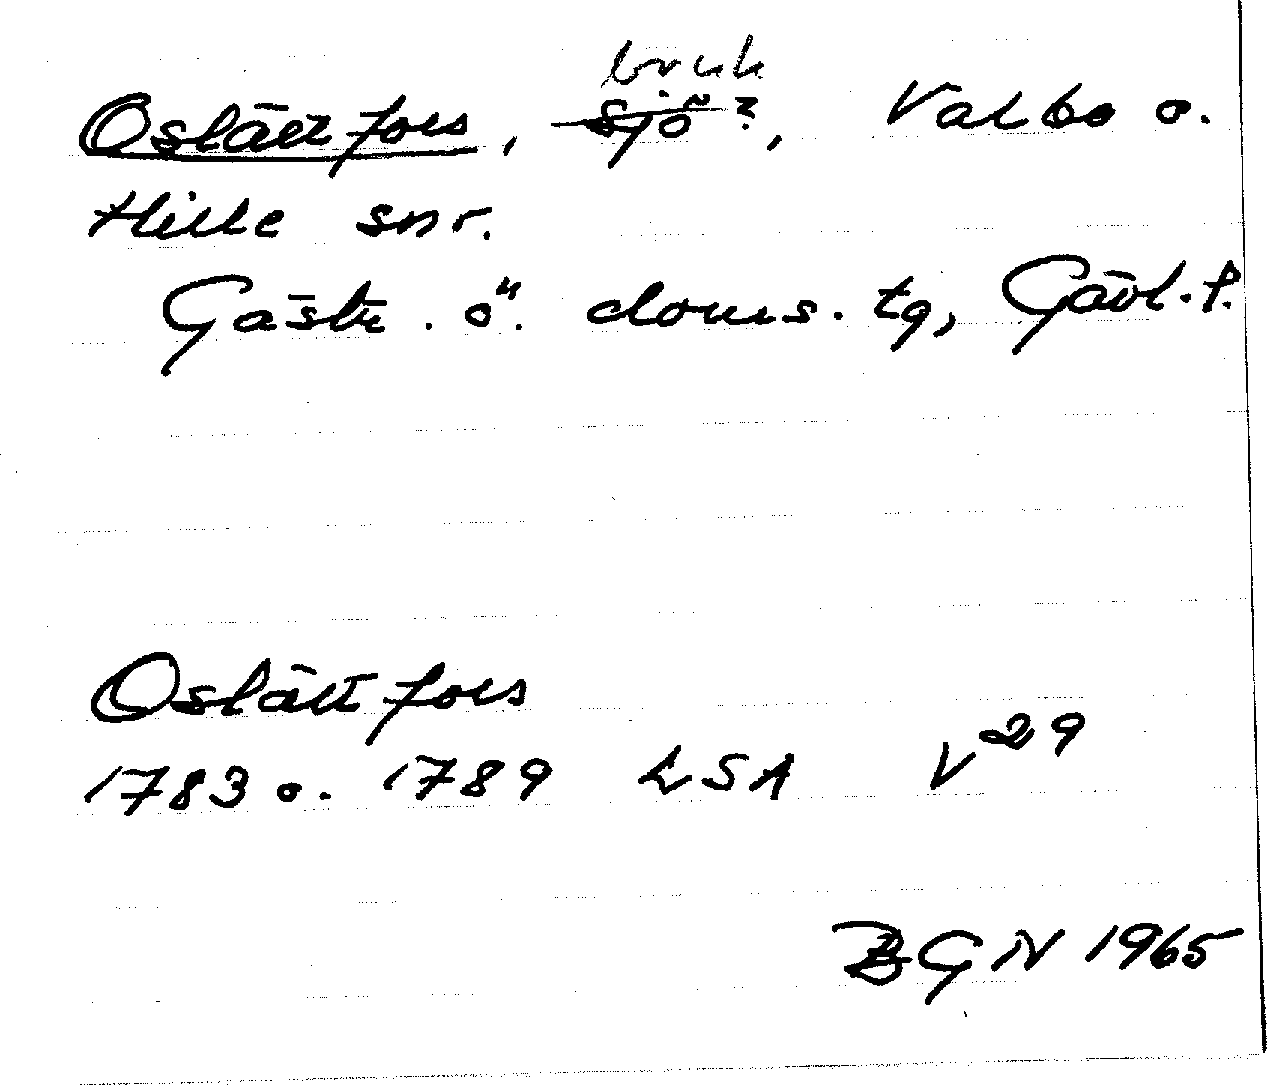 bruk
Oslättfors, sjö?, Valbo o.
Hille snr.
Gästr. ö. doms. tg, Gävl. l.
Oslättfors
1783 o. 1789 LSA V29
BGN 1965